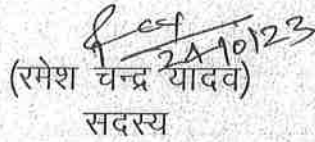 24/10/23
(रमेश चन्द्र यादव)
सदस्य